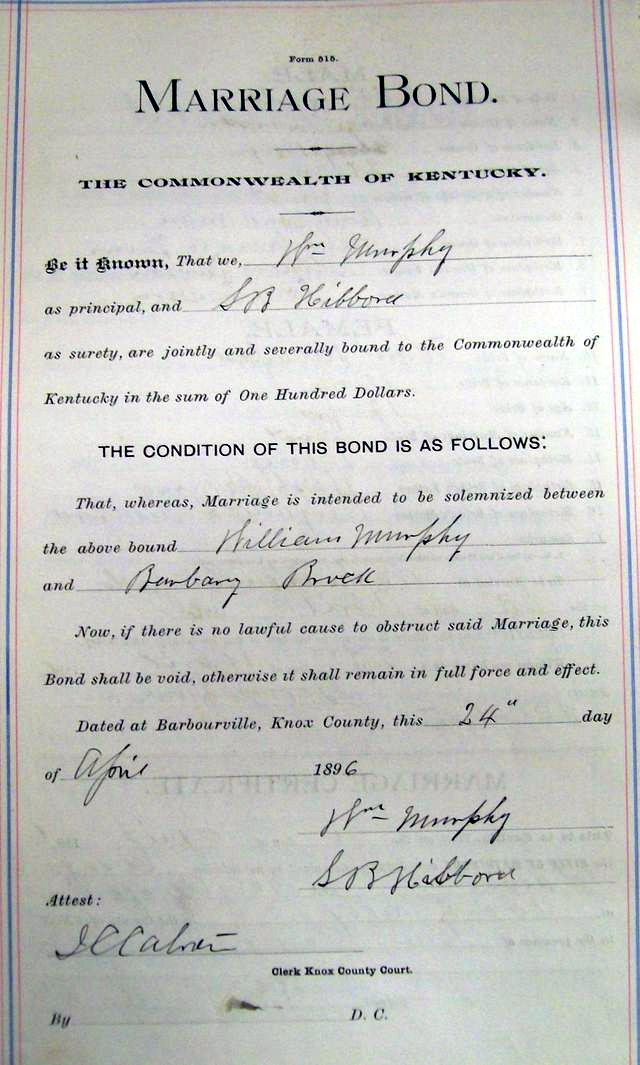 Form 515.
MARRIAGE BOND.
THE COMMONWEALTH OF KENTUCKY.
Be it Known, That we, Wm Murphy
as principal, and S B Hibbord
as surety, are jointly and severally bound to the Commonwealth of
Kentucky in the sum of One Hundred Dollars.
THE CONDITION OF THIS BOND IS AS FOLLOWS:
That, whereas, Marriage is intended to be solemnized between
the above bound William Murphy
and Barbary Brock
Now, if there is no lawful cause to obstruct said Marriage, this
Bond shall be void, otherwise it shall remain in full force and effect.
Dated at Barbourville, Knox County, this 24" day
of April 1896
Wm Murphy
S B Hibbord
Attest:
Clerk Knox County Court.
By D. C.